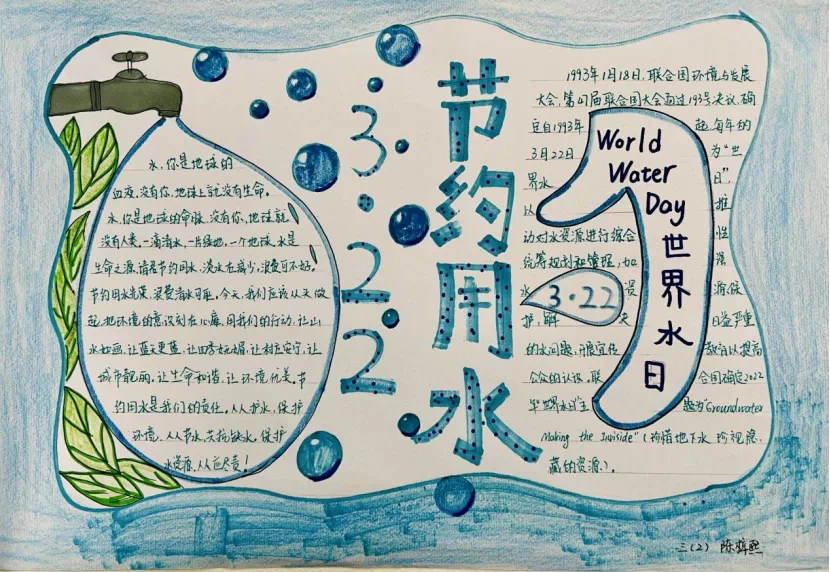 节约用水
3.22
水,你是地球的
血液,没有你,地球上就没有生命。
水,你是地球的命脉,没有你,地球就
没有人类,一滴清水,一片绿地,一个地球,水是
生命之源,请君节约用水,淡水在减少,浪费可不好。
节约用水光荣,浪费清水可耻,今天,我们应该从我做
起,把环境的意识刻在心扉,用我们的行动,让山
水如画,让蓝天更蓝,让四季妩媚,让村庄安宁,让
城市靓丽,让生命和谐,让环境优美。节
约用水是我们的责任,人人护水,保护
环境,人人节水,共抗缺水,保护
水资源,人人应尽责!
1993年1月18日,联合国环境与发展
大会,第47届联合国大会通过193号决议,确
定自1993年起,每年的
3月22日为“世
界水日”,
以推
动对水资源进行综合性
统筹规划和管理,加强
水资源保
护,解决日益严重
的水问题,开展宣传教育以提高
公众的认识,联合国确定2022
年“世界水日”主题为“Groundwater
Making the Invisible”(珍惜地下水,珍视隐
藏的资源)。
World
Water
Day
世界水日
3.22
三(2)